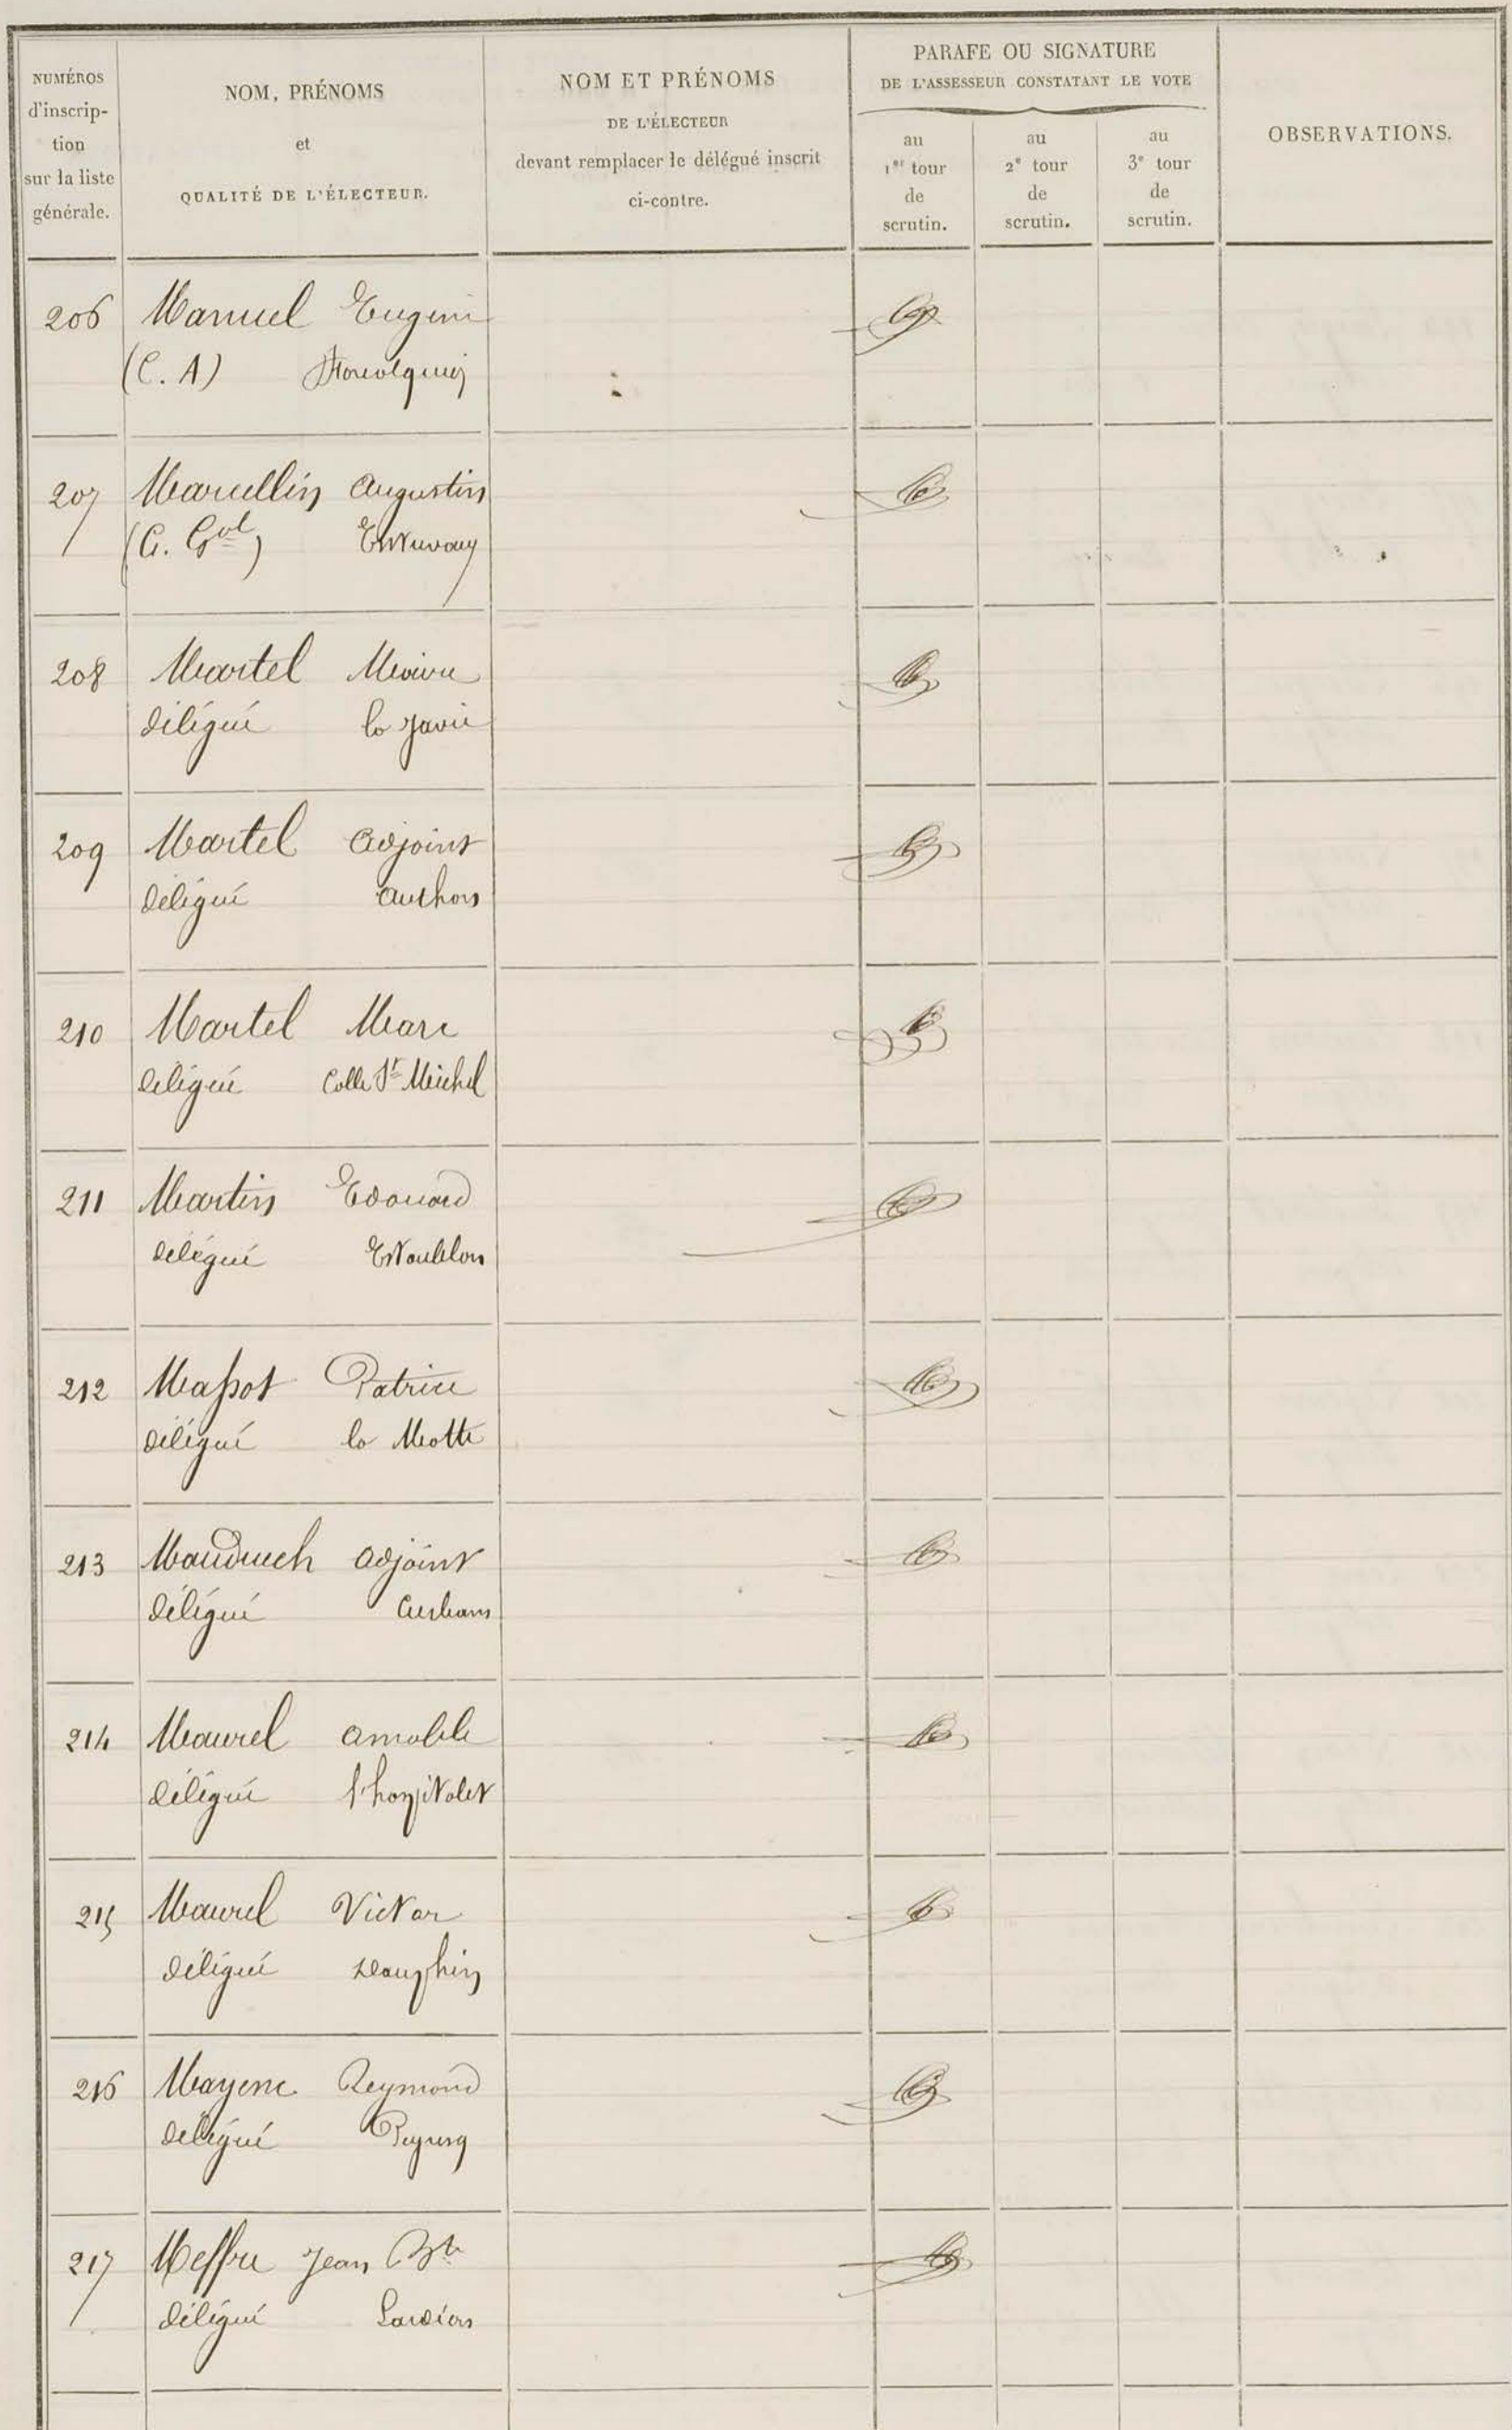 NUMÉROS
d'inscrip-
tion
sur la liste
générale.
NOM, PRÉNOMS
et
QUALITÉ DE L'ÉLECTEUR.
NOM ET PRÉNOMS
DE L'ÉLECTEUR
devant remplacer le délégué inscrit
ci-contre.
PARAFE OU SIGNATURE
DE L'ASSESSEUR CONSTATANT LE VOTE
au
1er tour
de
scrutin.
au
2e tour
de
scrutin.
au
3e tour
de
scrutin.
OBSERVATIONS.
206 Manuel Eugène
(C. A) Forcalquier
207 Marcellin Augustin
(C. Gal) Entrevaux
208 Martel Maire
délégué la Javie
209 Martel Adjoint
délégué Authon
210 Martel Marc
délégué Colle St Michel
211 Martin Edouard
délégué Estoublon
212 Massot Patrice
délégué la Motte
213 Mauduech adjoint
délégué Curbans
214 Maurel Amable
délégué l'hospitalet
215 Maurel Victor
délégué Dauphin
216 Mayenc Reymond
délégué Peyruis
217 Meffre Jean Bte
délégué Lardiers